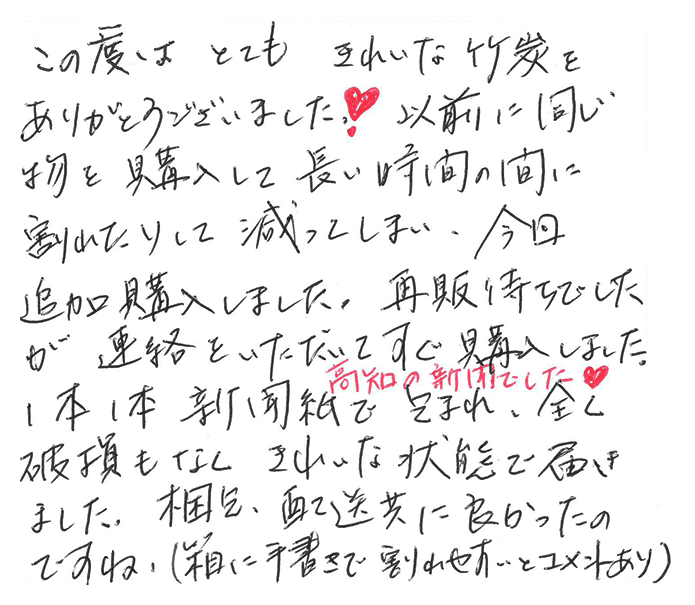 この度は とても きれいな竹炭を
ありがとうございました。以前に同じ
物を購入して長い時間の間に
割れたりして減ってしまい、今回
追加購入しました。再販待ちでした
が 連絡をいただいてすぐ購入しました。
高知の新聞でした
1本1本 新聞紙で包まれ、全く
破損もなく きれいな状態で届き
ました。梱包、配送共に良かったの
ですね、(箱に手書きで割れやすいとコメントあり)